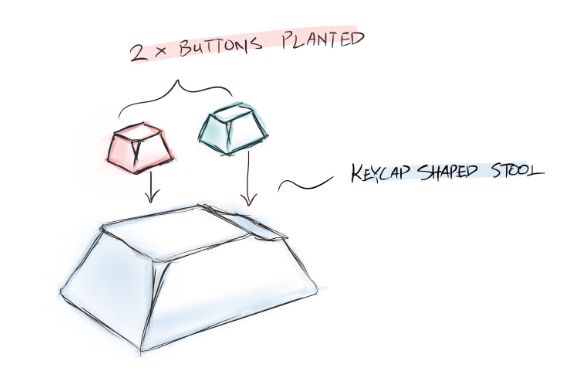 2 x BUTTONS PLANTED
KEYCAP SHAPED STOOL